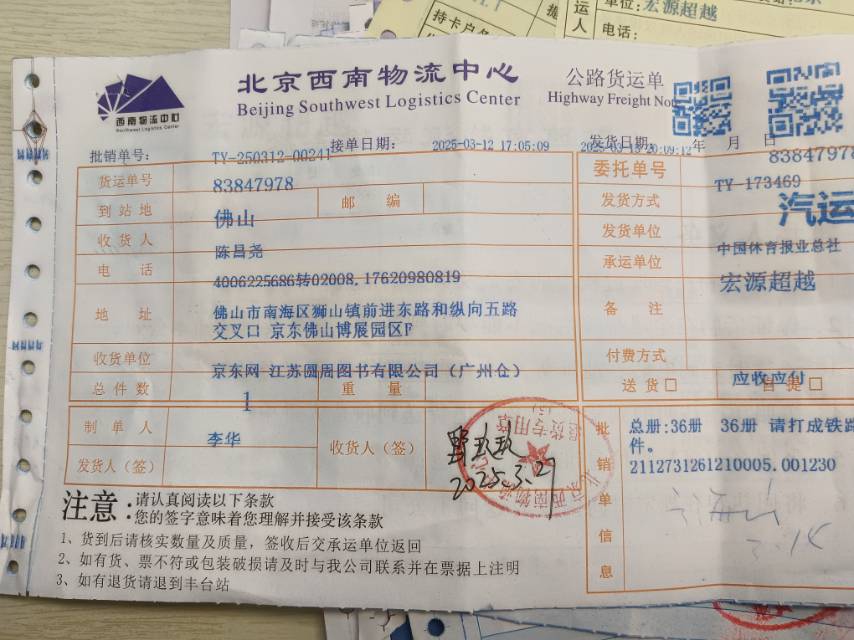 持卡户名
单位:宏源超越
运
人
电话:
北京西南物流中心
公路货运单
Beijing Southwest Logistics Center
Highway Freight Note
西南物流中心
Northwest Logistics Center
批销单号:
TY-250312-00241
接单日期:
2025-03-12 17:05:09
发货日期:
年 月 日
货运单号
83847978
委托单号
TY-173469
到站地
佛山
邮 编
发货方式
汽运
收货人
陈昌尧
发货单位
中国体育报业总社
电 话
4006225686转02008,17620980819
承运单位
宏源超越
地 址
佛山市南海区狮山镇前进东路和纵向五路
交叉口 京东佛山博展园区F
备 注
收货单位
京东网 江苏圆周图书有限公司(广州仓)
付费方式
应收应付
总件数
1
重 量
送货□
自提□
制单人
李华
收货人(签)
2025.3.27
发货人(签)
批销单信息
总册:36册 36册 请打成铁路
件。
2112731261210005.001230
注意:
请认真阅读以下条款
您的签字意味着您理解并接受该条款
1、货到后请核实数量及质量,签收后交承运单位返回
2、如有货、票不符或包装破损请及时与我公司联系并在票据上注明
3、如有退货请退到丰台站